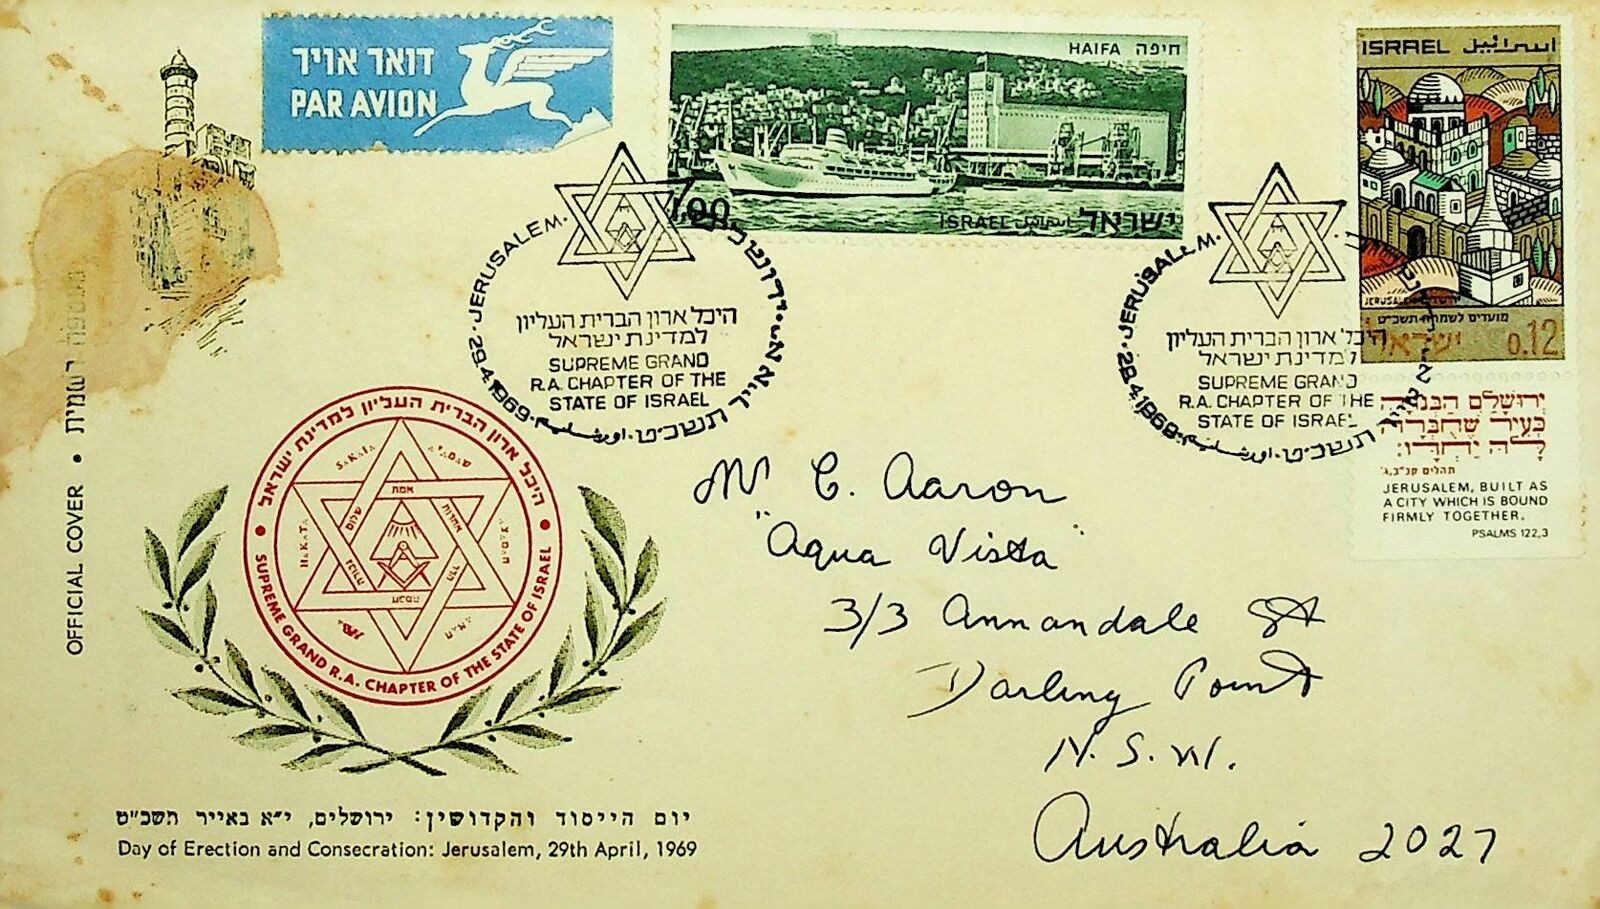 דואר אויר
PAR AVION
HAIFA חיפה
1.00
ISRAEL اسرائيل ישראל
ISRAEL اسرائيل
מועדים לשמחה תשכ"ט
ישראל 0.12
יְרוּשָׁלַםִ הַבְּנוּיָה
כְּעִיר שֶׁחֻבְּרָה
לָּהּ יַחְדָּו:
תהלים קכ"ב, ג'
JERUSALEM, BUILT AS
A CITY WHICH IS BOUND
FIRMLY TOGETHER.
PSALMS 122,3
29.4.1969 · JERUSALEM · ירושלים · י"א אייר תשכ"ט
היכל ארון הברית העליון
למדינת ישראל
SUPREME GRAND
R.A. CHAPTER OF THE
STATE OF ISRAEL
29.4.1969 · JERUSALEM · אייר תשכ"ט
היכל ארון הברית העליון
למדינת ישראל
SUPREME GRAND
R.A. CHAPTER OF THE
STATE OF ISRAEL
OFFICIAL COVER • מעטפה רשמית
היכל ארון הברית העליון למדינת ישראל
SUPREME GRAND R.A. CHAPTER OF THE STATE OF ISRAEL
אמת
שלום
אחדות
Mr C. Aaron
"Aqua Vista"
3/3 Annandale St
Darling Point
N.S.W.
Australia 2027
יום הייסוד והקדושין: ירושלים, י"א באייר תשכ"ט
Day of Erection and Consecration: Jerusalem, 29th April, 1969